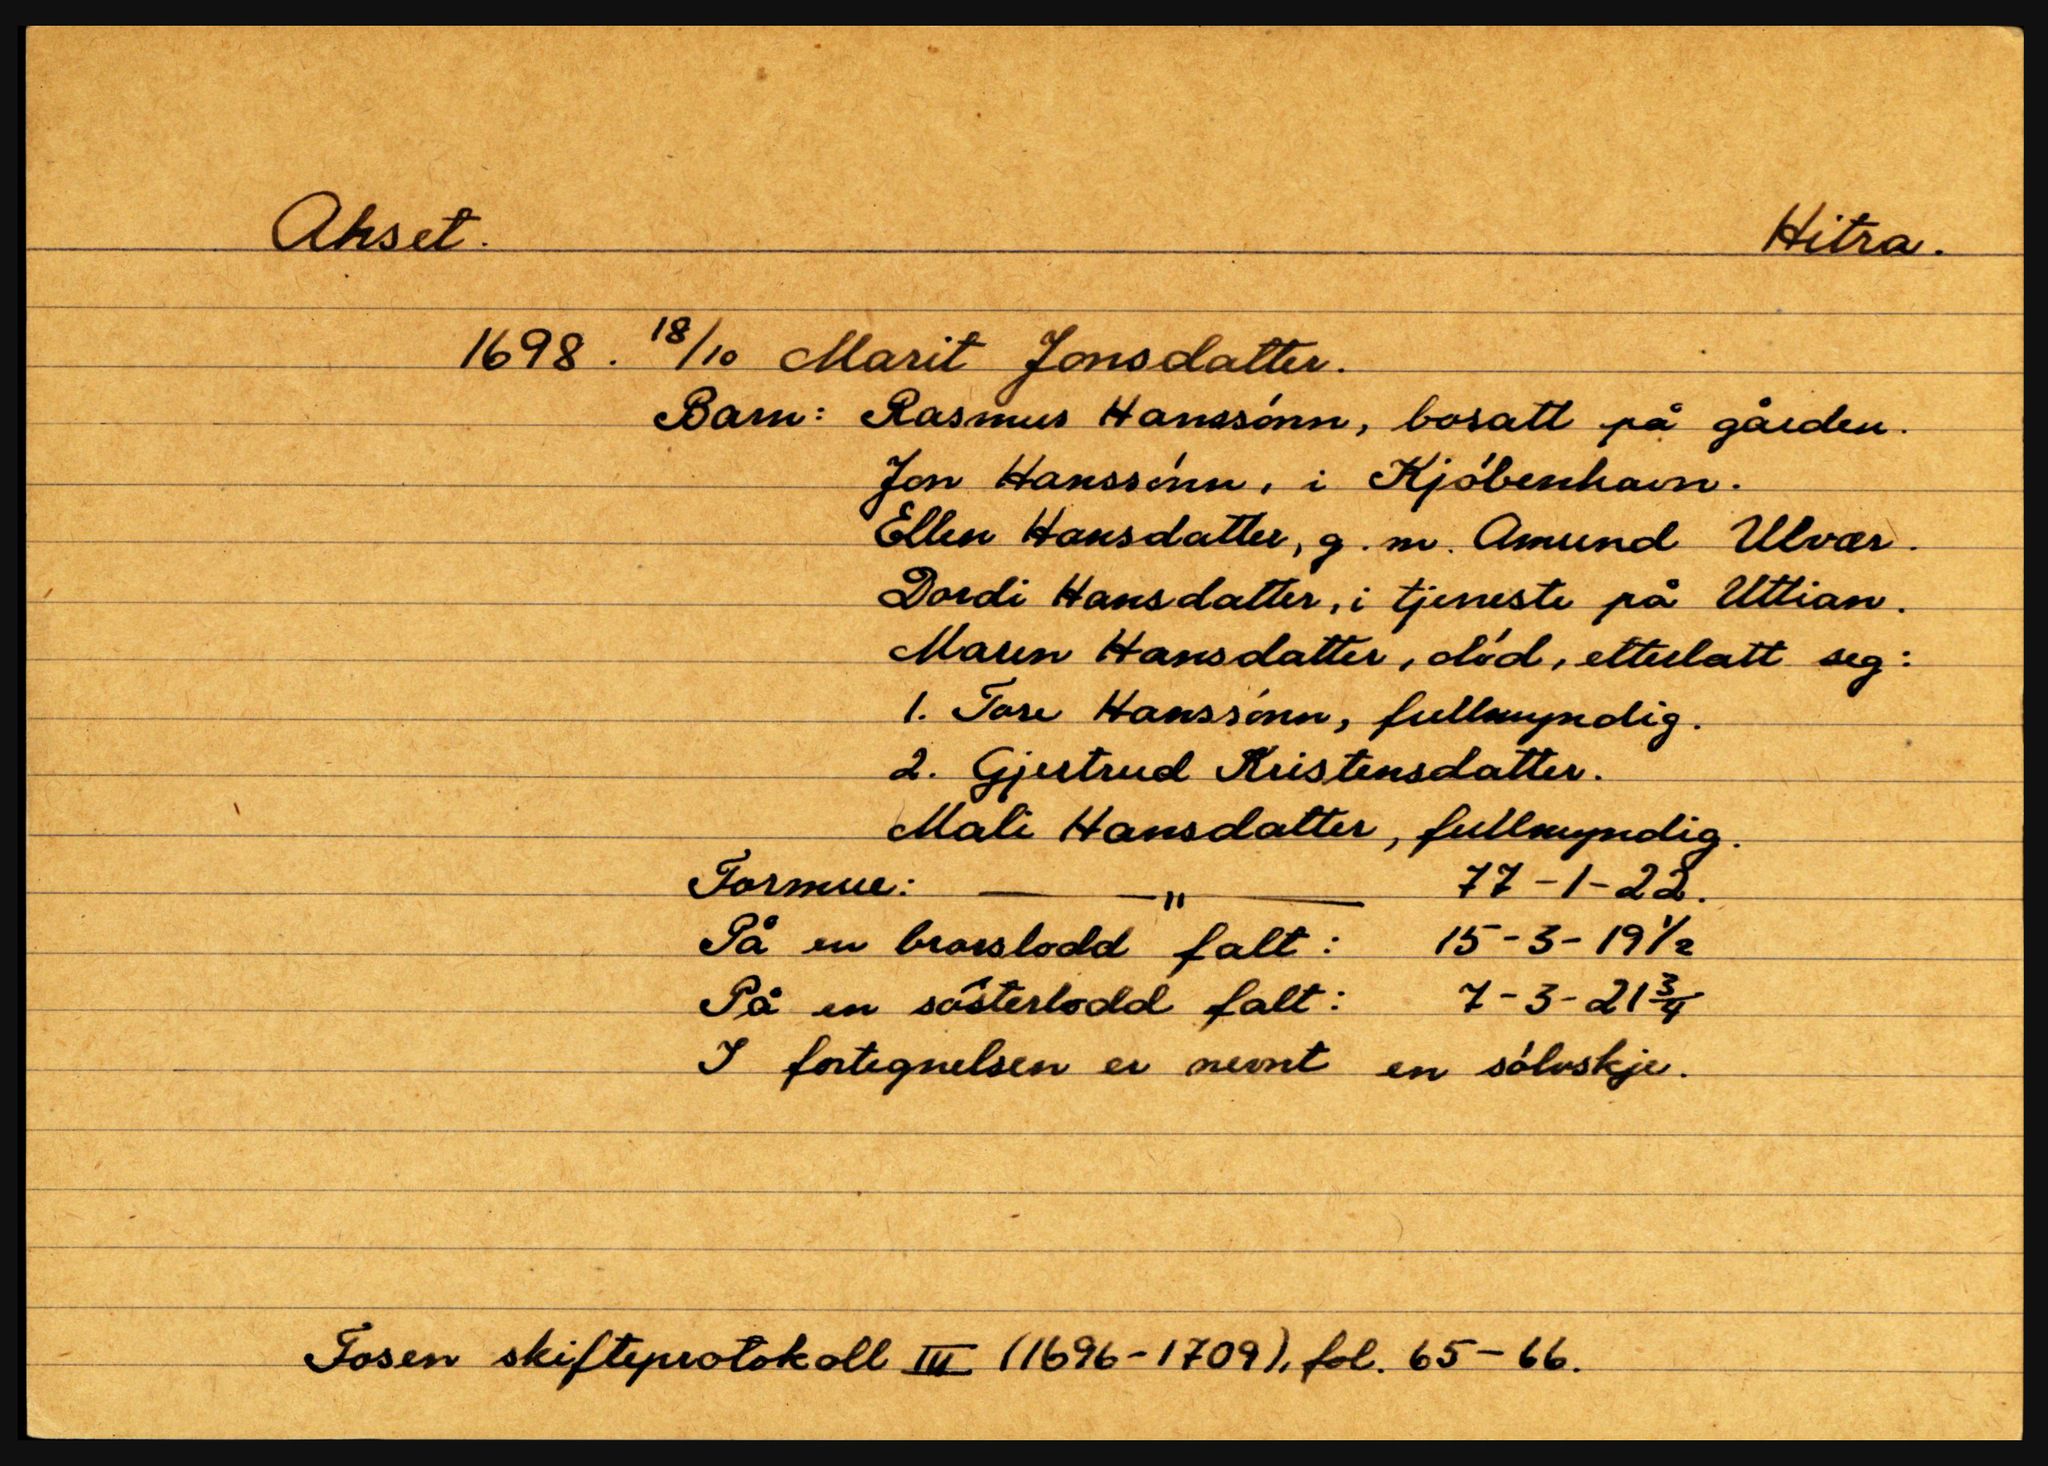 Akset. Hitra.
1698. 18/10 Marit Jonsdatter.
Barn: Rasmus Hanssónn, bosatt på gården.
Jon Hanssónn, i Kjóbenhavn.
Ellen Hansdatter, g. m. Amund Ulvær.
Dordi Hansdatter, i tjeneste på Uttian.
Maren Hansdatter, dód, etterlatt seg:
1. Tore Hanssónn, fullmyndig.
2. Gjertrud Kristensdatter.
Mali Hansdatter, fullmyndig.
Formue: — " — 77-1-22.
På en brorslodd falt: 15-3-19 1/2
På en sósterlodd falt: 7-3-21 3/4
I fortegnelsen er nevnt en sólvskje.
Fosen skifteprotokoll III (1696-1709), fol. 65-66.